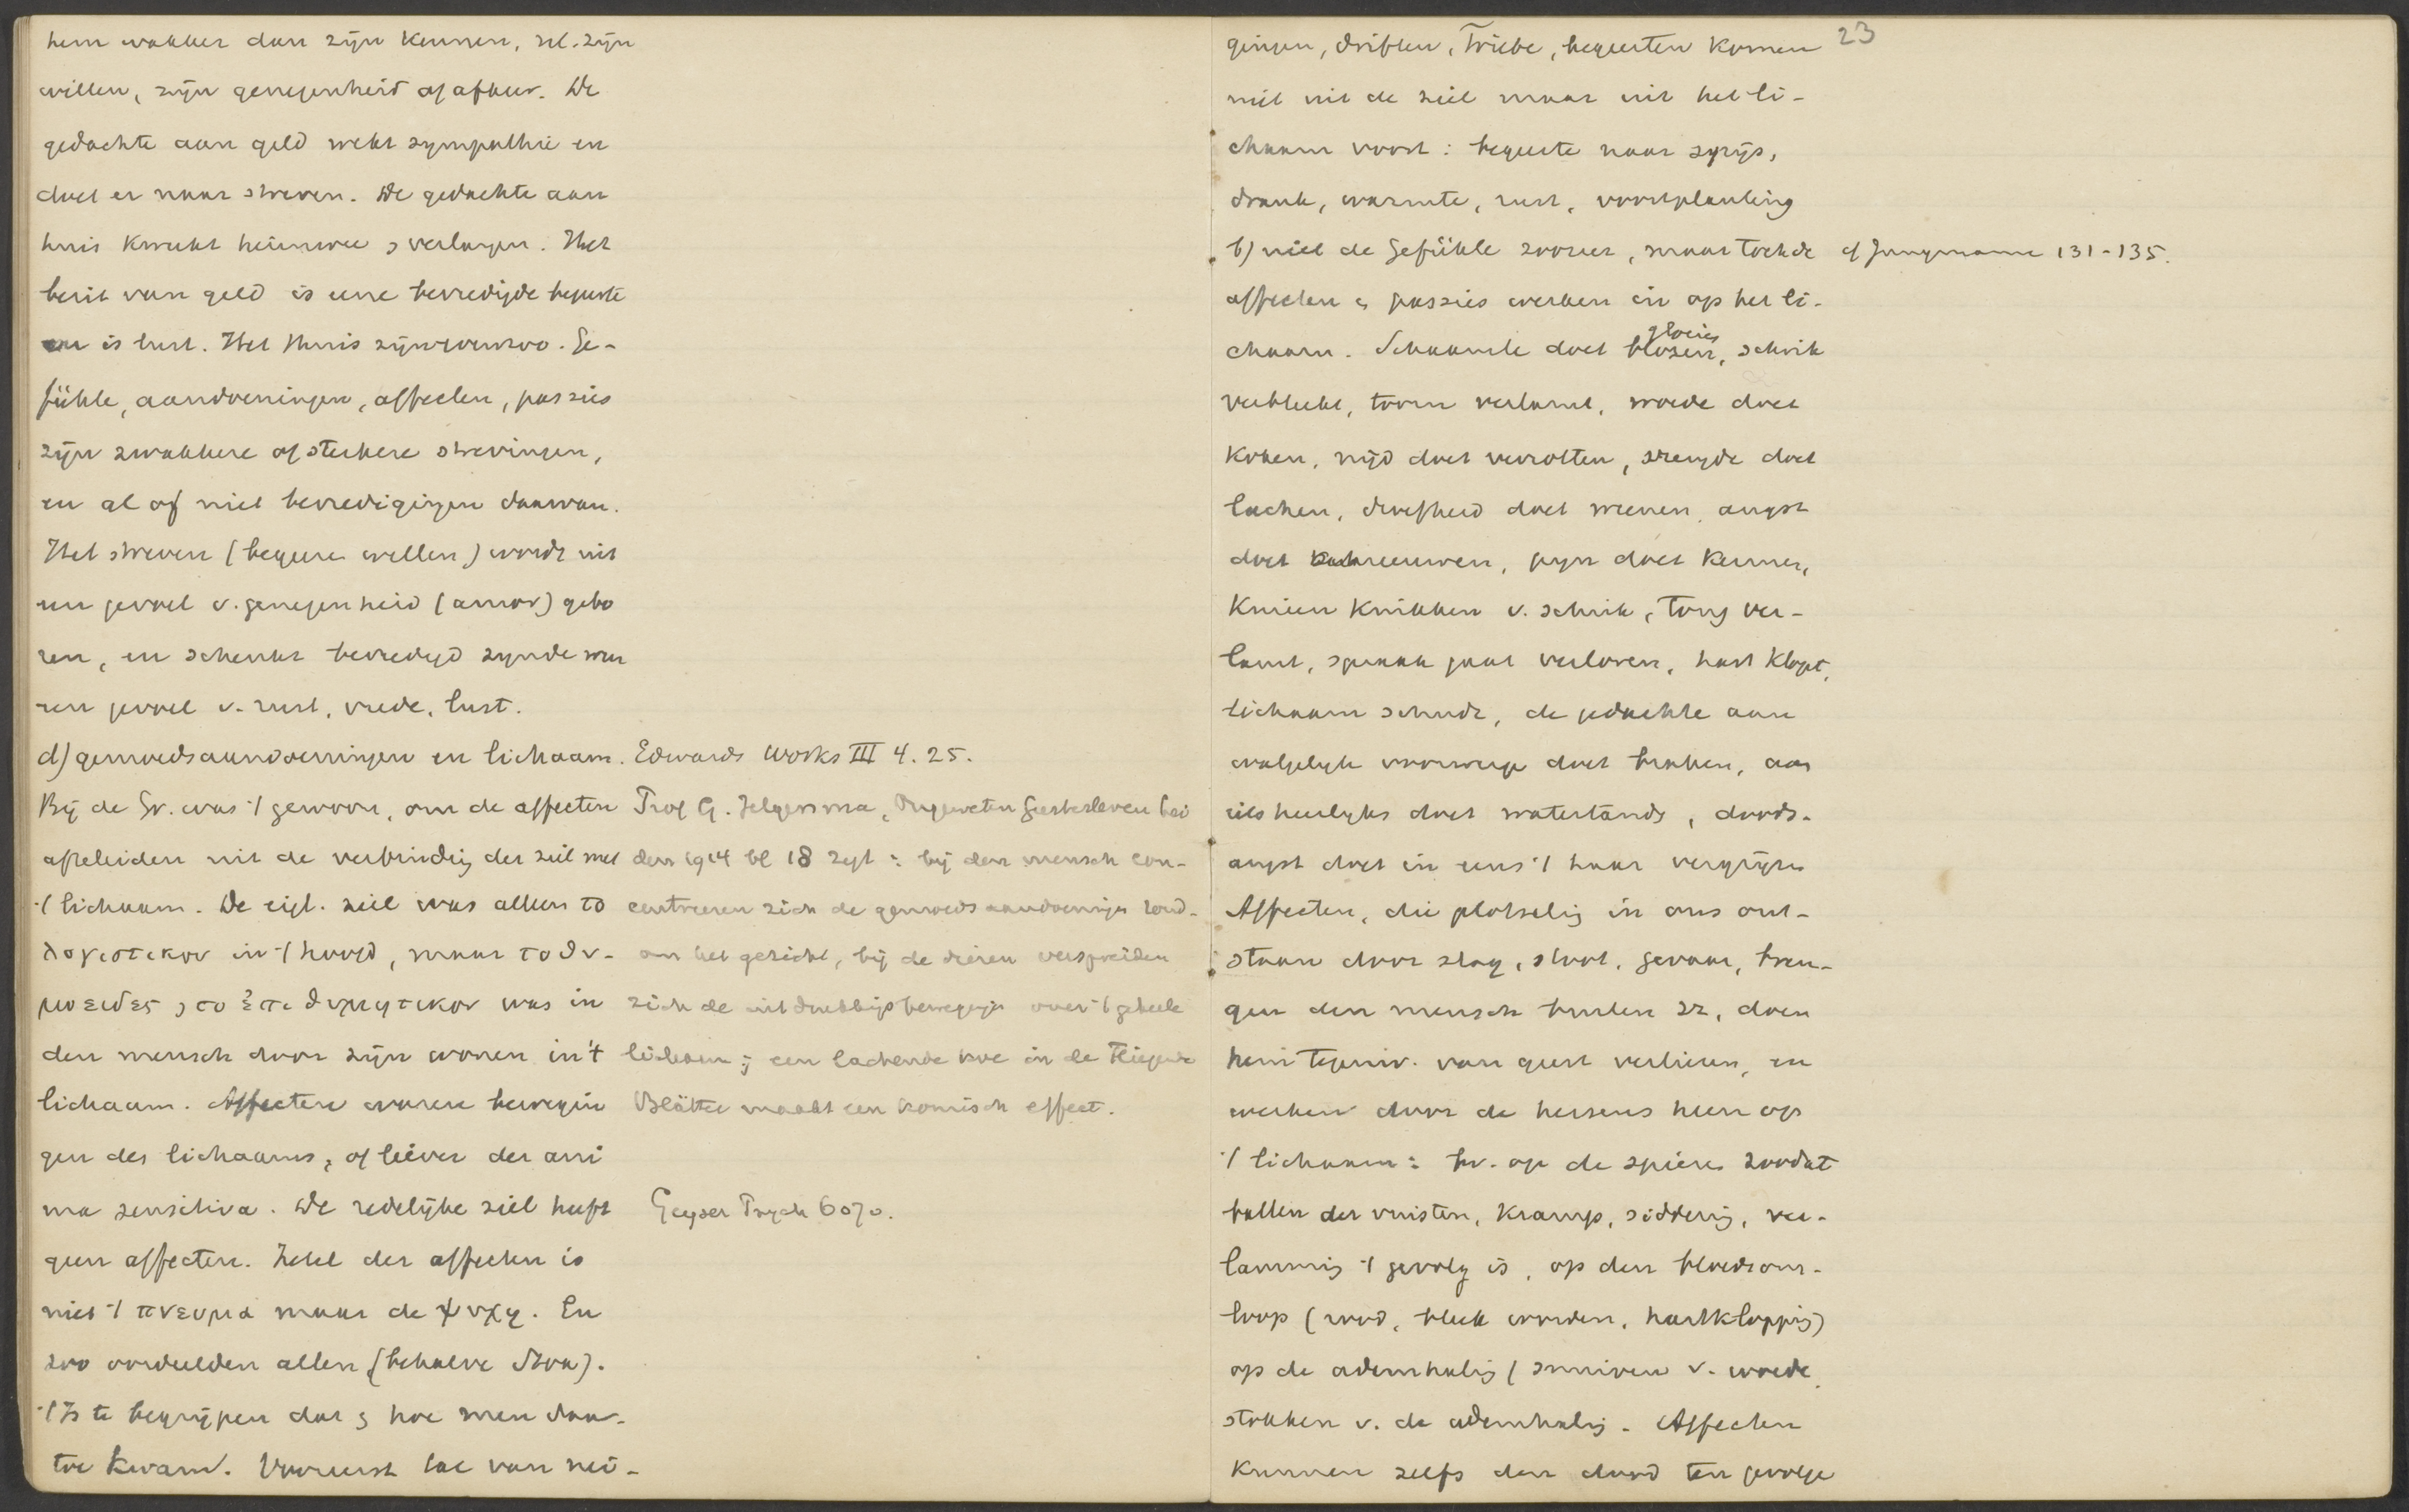 hem wakker dan zijn kennen, nl. zijn
willen, zijn genegenheid of afkeer. De
gedachte aan geld wekt sympathie en
doet er naar streven. De gedachte aan
huis kweekt heimwee, verlangen. Het
bezit van geld is eene bevredigde begeerte
en is lust. Het thuis zijn evenzoo. Ge-
fühle, aandoeningen, affecten, passies
zijn zwakkere of sterkere strevingen,
en al of niet bevredigingen daarvan.
Het streven (begeeren willen) wordt uit
een gevoel v. genegenheid (amor) gebo
ren, en schenkt bevredigd zijnde weer
een gevoel v. rust, vrede, lust.
d) gemoedsaandoeningen en lichaam.
Bij de Gr. was 't gewoon, om de affecten
afteleiden uit de verbinding der ziel met
't lichaam. De eigl. ziel was alleen το
λογιστικον in 't hoofd, maar το θυ-
μοειδες , το ἐπιθυμητικον was in
den mensch door zijn wonen in 't
lichaam. Affecten waren bewegin
gen des lichaams, of liever der ani
ma sensitiva. De redelijke ziel heeft
geen affecten. Zetel der affecten is
niet 't πνευμα maar de ψυχη. En
zoo oordeelden allen (behalve Stoa).
't Is te begrijpen dat, hoe men daar-
toe kwam. Vooreerst tal van nei-
Edwards Works III 4. 25.
Prof G. Jelgersma, Ongeweten Geestesleven Lei
den 1914 bl 18 zegt: bij den mensch con-
centreeren zich de gemoedsaandoeningen rond-
om het gezicht, bij de dieren verspreiden
zich de uitdrukkingsbewegingen over 't geheele
lichaam; een lachende koe in de Fliegende
Blätter maakt een komisch effect.
Geyser Psych 6070.
23
gingen, driften, Triebe, begeerten komen
niet uit de ziel maar uit het li-
chaam voort: begeerte naar spijs,
drank, warmte, rust, voortplanting
b) niet de Gefühle zoozeer, maar toch de
affecten, passies werken in op het li-
chaam. Schaamte doet blozen, gloeien, schrik
verbleekt, toorn verlamt, woede doet
koken, nijd doet verrotten, vreugde doet
lachen, droefheid doet weenen, angst
doet schreeuwen, pijn doet kermen,
knieen knikken v. schrik, tong ver-
lamt, spraak gaat verloren, hart klopt,
lichaam schudt, de gedachte aan
walgelijk voorwerp doet braken, aan
iets heerlijks doet watertanden, doods-
angst doet in eens 't haar vergrijzen
Affecten, die plotselijk in ons ont-
staan door slag, stoot, gevaar, bren-
gen den mensch buiten zz, doen
hem tegenw. van geest verliezen, en
werken door de hersens heen op
't lichaam: bv. op de spieren zoodat
ballen der vuisten, kramp, siddering, ver-
lamming 't gevolg is, op den bloedsom-
loop (rood, bleek worden, hartklopping)
op de ademhaling (snuiven v. woede,
stokken v. de ademhaling. Affecten
kunnen zelfs den dood ten gevolge
cf Jungmann 131-135.